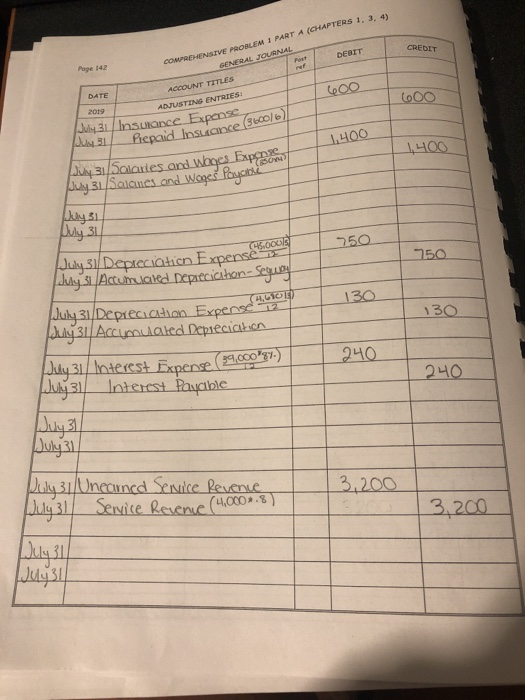 COMPREHENSIVE PROBLEM 1 PART A (CHAPTERS 1, 3, 4)
Page 142
GENERAL JOURNAL
DATE ACCOUNT TITLES Post ref DEBIT CREDIT
2019 ADJUSTING ENTRIES:
July 31 Insurance Expense 600
July 31 Prepaid Insurance (3600/6) 600
July 31 Salaries and Wages Expense 1,400
July 31 Salaries and Wages Payable 1,400
July 31
July 31
July 31 Depreciation Expense (45,000/5) 12 750
July 31 Accumulated Depreciation - Segway 750
July 31 Depreciation Expense 12 130
July 31 Accumulated Depreciation 130
July 31 Interest Expense (39,000*8%) 12 240
July 31 Interest Payable 240
July 31
July 31
July 31 Unearned Service Revenue 3,200
July 31 Service Revenue (4,000*.8) 3,200
July 31
July 31